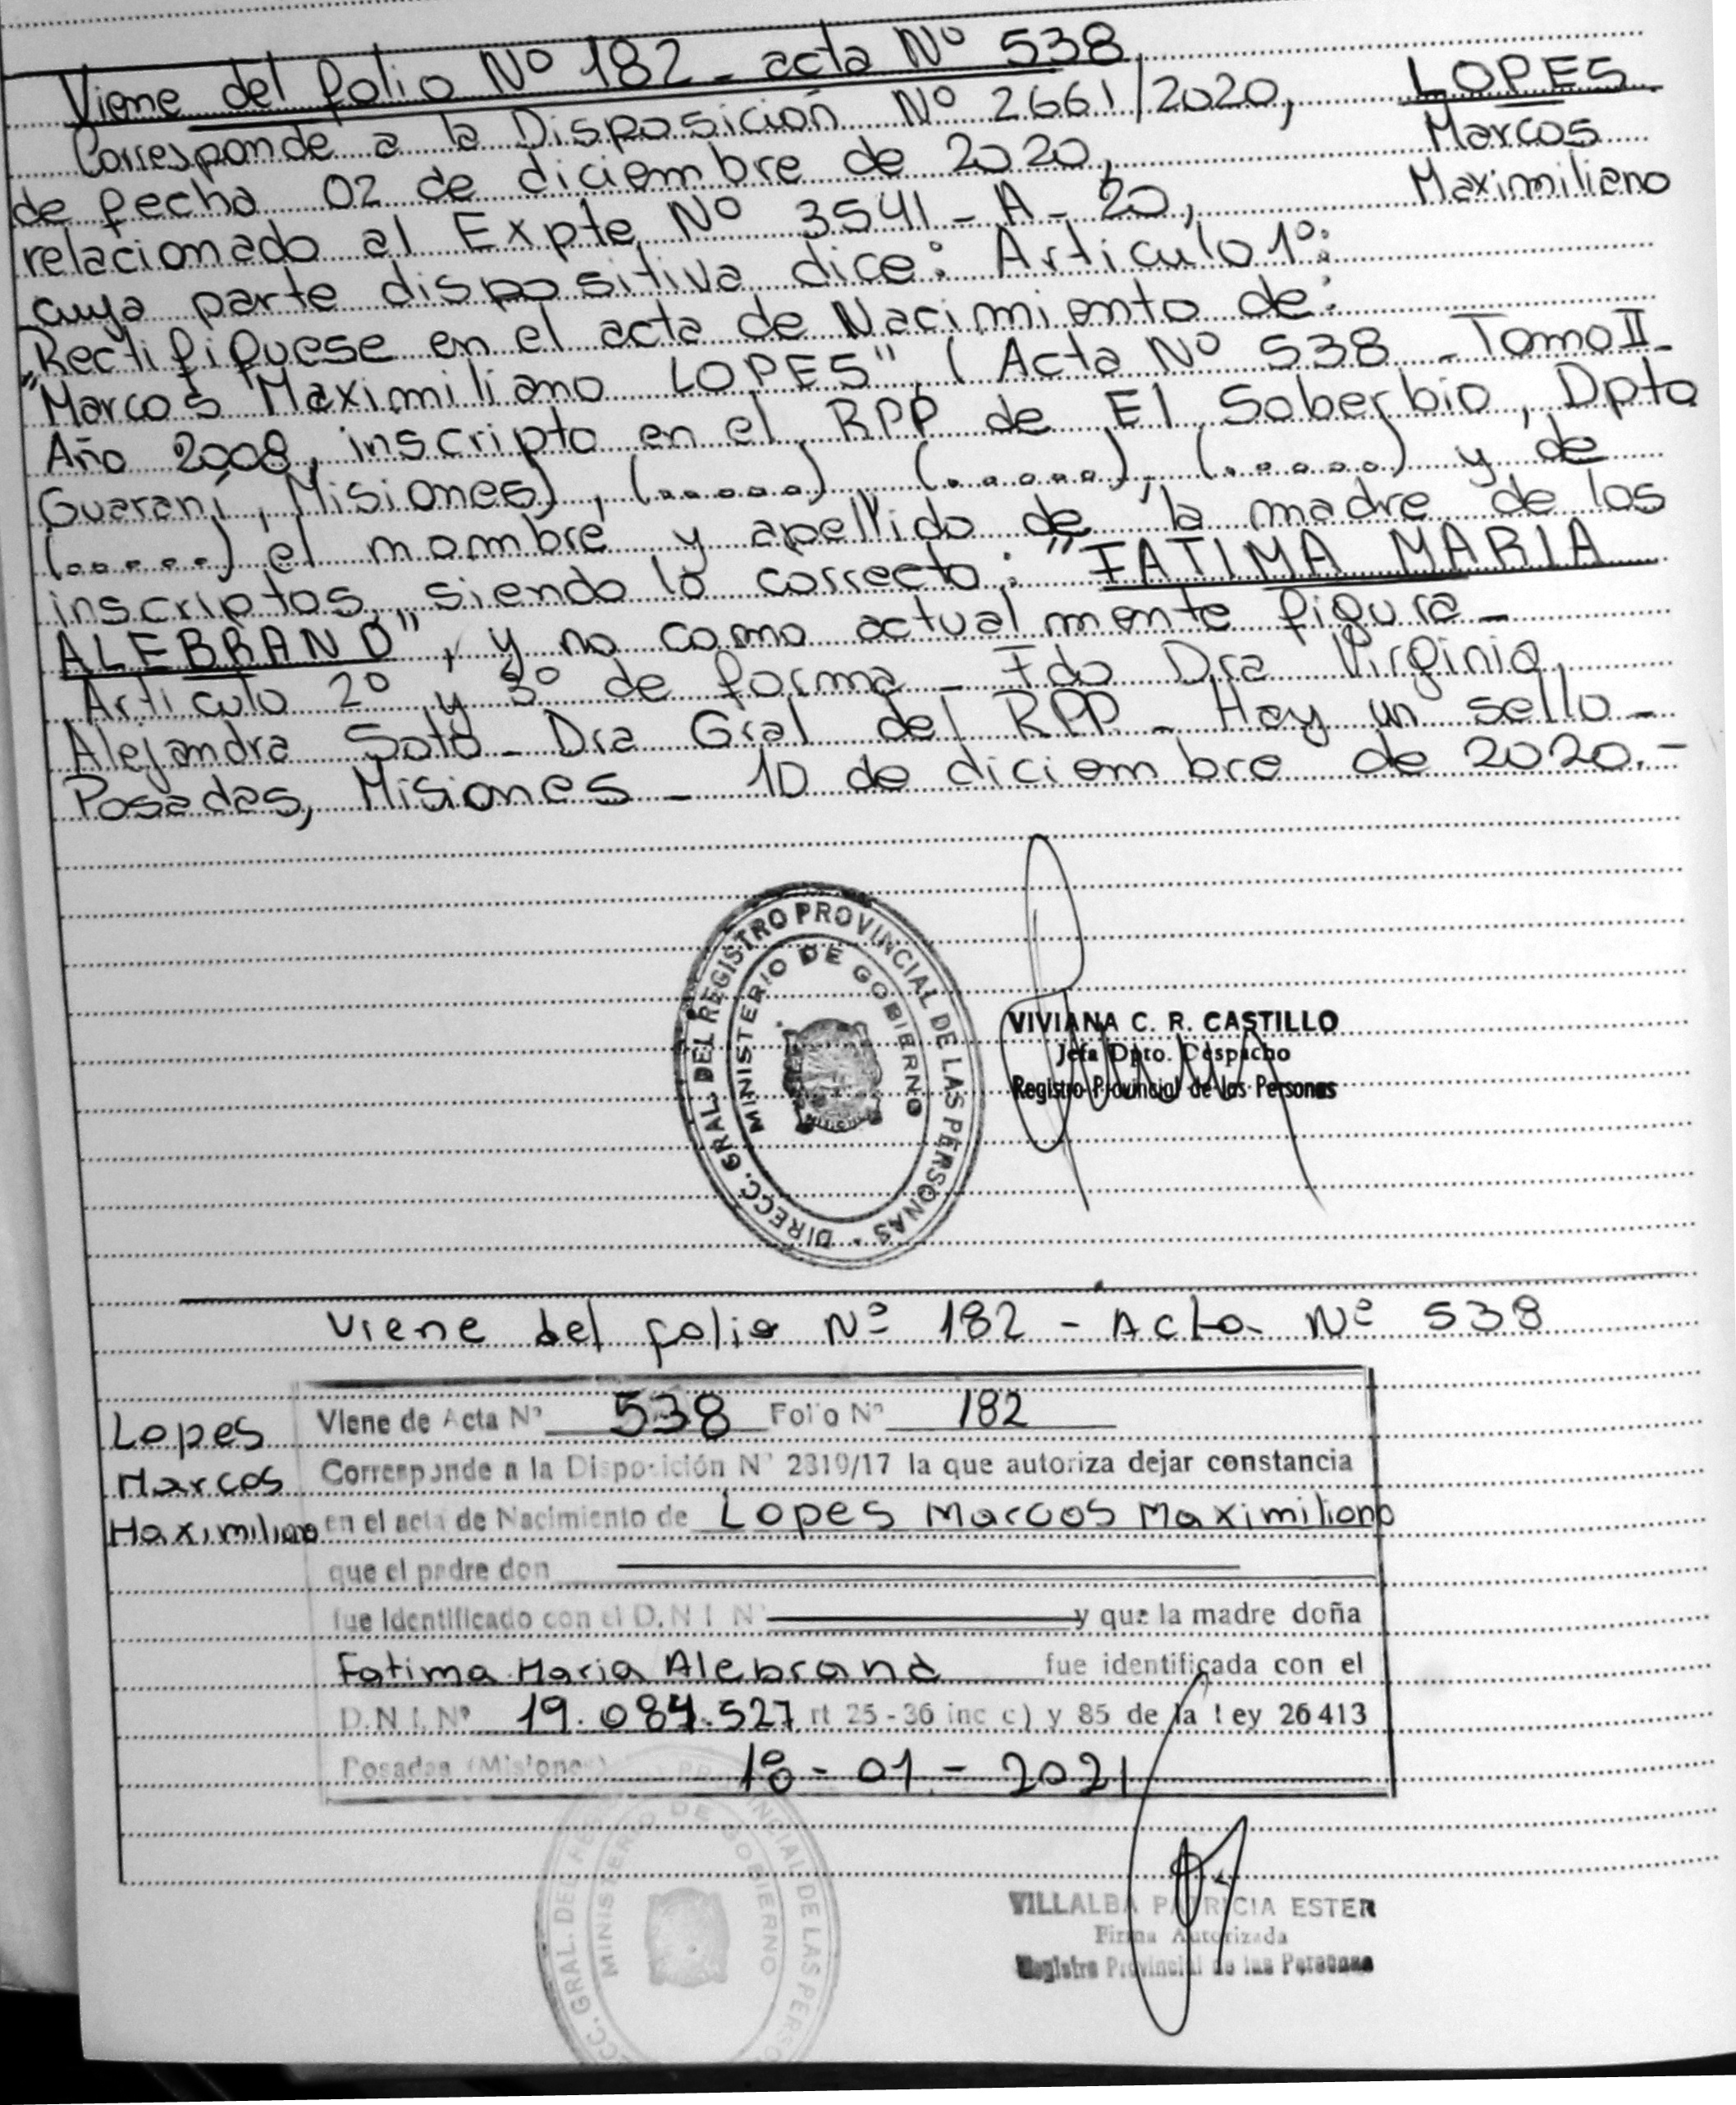 Viene del folio Nº 182 - acta Nº 538
Corresponde a la Disposición Nº 2661/2020,
de fecha 02 de diciembre de 2020,
relacionado al Expte Nº 3541 - A - 20,
cuya parte dispositiva dice: Articulo 1º:
Rectifiquese en el acta de Nacimiento de:
"Marcos Maximiliano LOPES", (Acta Nº 538 - Tomo II -
Año 2008, inscripto en el RPP de El Soberbio, Dpto
Guaraní, Misiones), (......) (.....), (.....) y de
(.....) el nombre y apellido de la madre de los
inscriptos, siendo lo correcto: "FATIMA MARIA
ALEBRAND", y no como actualmente figura -
Articulo 2º y 3º de forma - Fdo Dra Virginia
Alejandra Soto - Dra Gral del RPP - Hay un sello -
Posadas, Misiones - 10 de diciembre de 2020.-
LOPES
Marcos
Maximiliano
DIRECC. GRAL. DEL REGISTRO PROVINCIAL DE LAS PERSONAS
MINISTERIO DE GOBIERNO
VIVIANA C. R. CASTILLO
Jefa Dpto. Despacho
Registro Provincial de las Personas
Viene del folio Nº 182 - Acta Nº 538
Lopes
Marcos
Maximiliano
Viene de Acta Nº 538 Folio Nº 182
Corresponde a la Disposición Nº 2319/17 la que autoriza dejar constancia
en el acta de Nacimiento de Lopes Marcos Maximiliano
que el padre don
fue identificado con el D.N.I. Nº y que la madre doña
Fatima Maria Alebrand fue identificada con el
D.N.I. Nº 19.084.527 rt 25 - 36 inc c) y 85 de la Ley 26413
Posadas (Misiones) 18 - 01 - 2021
DIRECC. GRAL. DEL REGISTRO PROVINCIAL DE LAS PERSONAS
MINISTERIO DE GOBIERNO
VILLALBA PATRICIA ESTER
Firma Autorizada
Registro Provincial de las Personas